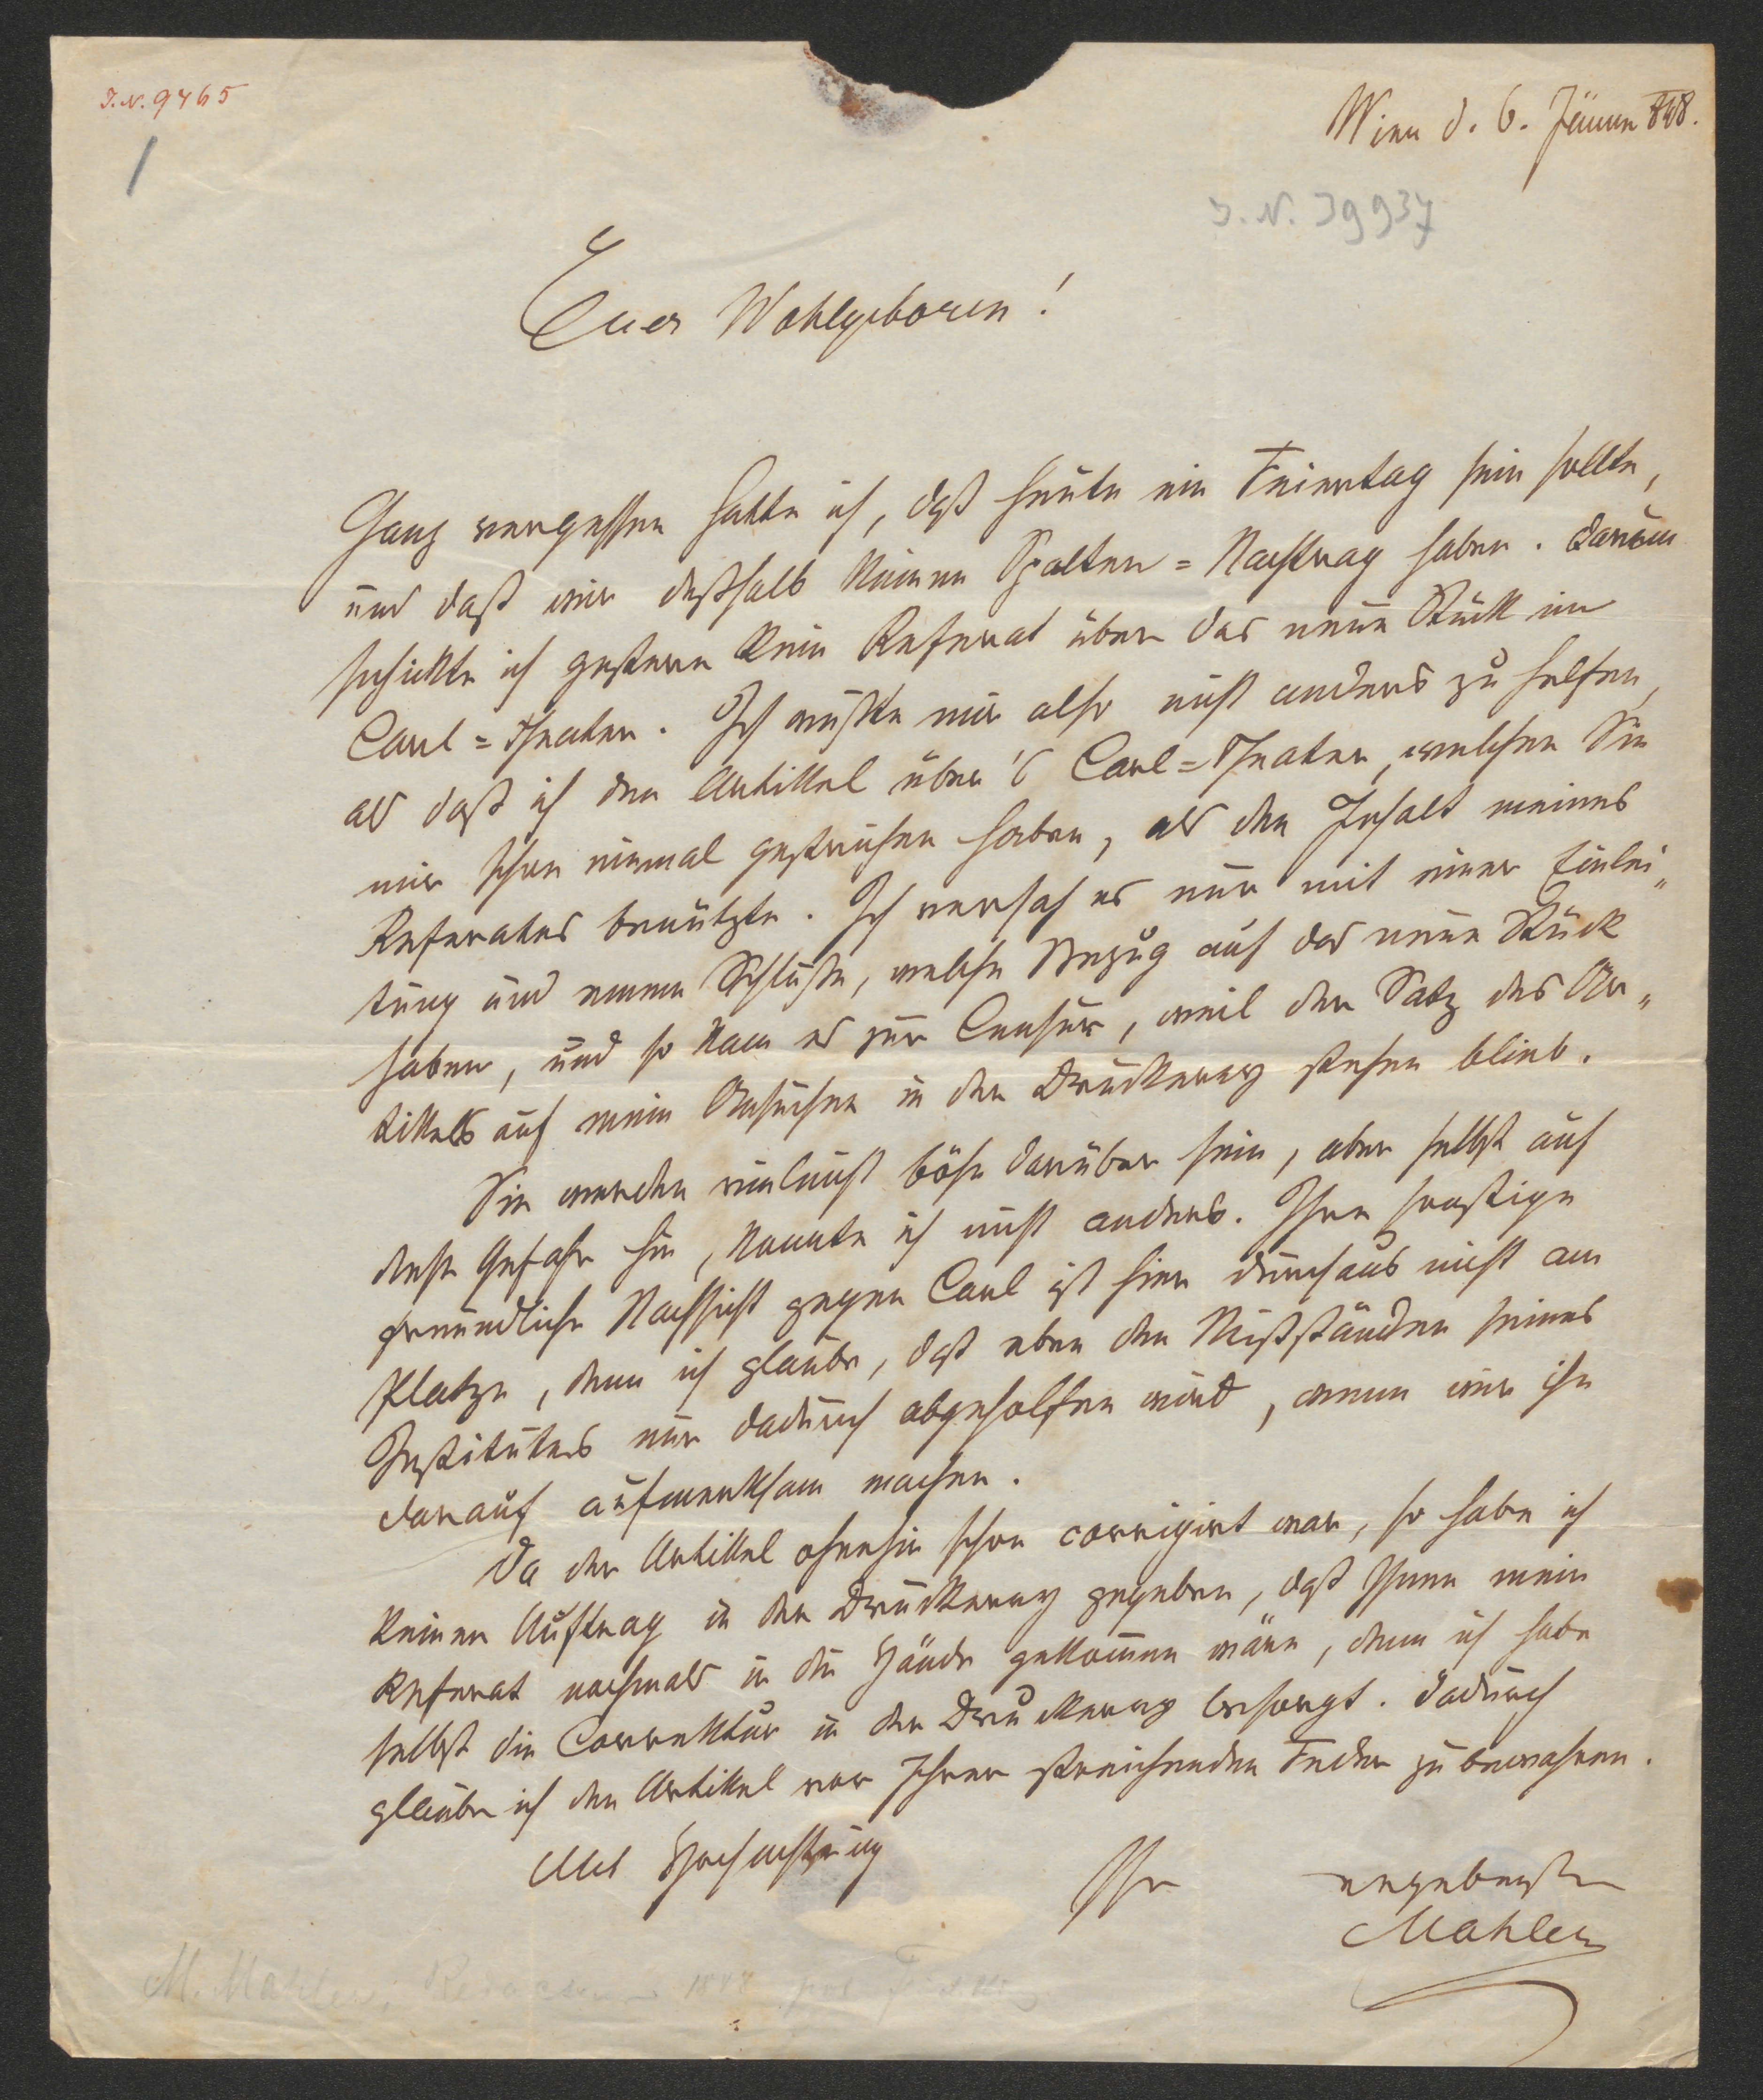 J.N. 9465
/
Wien d. 6. Jänner 848.
J.N. 39937
Euer Wohlgeboren!
Ganz vergessen hatte ich, daß heute ein Feiertag sein sollte,
und daß wir deßhalb keinen Spalten=Nachtrag haben. Darum
schickte ich gestern kein Referat über das neue Stück im
Carl=Theater. Ich wußte mir also nicht anders zu helfen,
als daß ich den Artikel über's Carl=Theater, welchen Sie
mir schon einmal gestrichen haben, als den Inhalt meines
Referates benützte. Ich versah es nur mit einer Einlei„
tung und einem Schluße, welche Bezug auf das neue Stück
haben, und so kam es zur Censur, weil der Satz des Ar„
tikels auf mein Ansuchen in der Druckerey stehen blieb.
Sie werden vielleicht böse darüber sein, aber selbst auf
diese Gefahr hin, konnte ich nicht anders. Ihre sonstige
freundliche Nachsicht gegen Carl ist hier durchaus nicht am
Platze, denn ich glaube, daß eben den Mißständen seines
Institutes nur dadurch abgeholfen wird, wenn wir ihn
darauf aufmerksam machen.
Da der Artikel ohnehin schon corrigirt war, so habe ich
keinen Auftrag in der Druckerey gegeben, daß Ihnen mein
Referat nochmals in die Hände gekommen wäre, denn ich habe
selbst die Correktur in der Druckerey besorgt. Dadurch
glaube ich den Artikel vor Ihrer streichenden Feder zu bewahren.
Mit Hochachtung
Ihr ergebenster
Mahler
M. Mahler, 1848